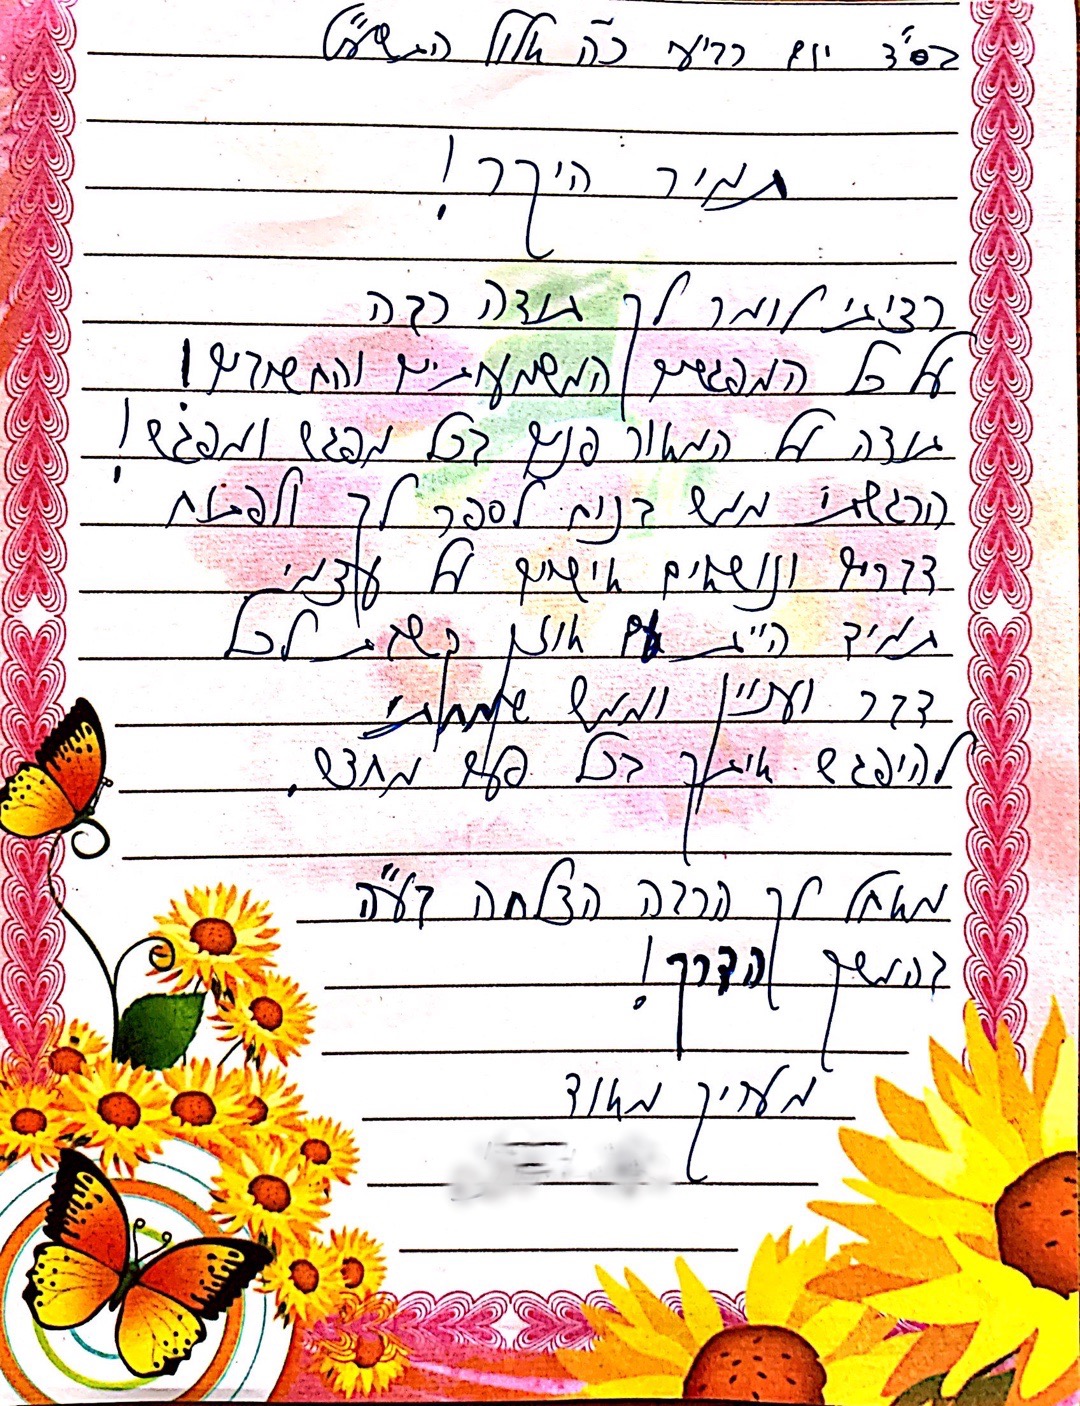 בס"ד יום רביעי כ"ה אלול התשע"ט
תמיר היקר!
רציתי לומר לך תודה רבה
על כל המפגשים המשמעותיים והחשובים!
תודה על המאור פנים בכל מפגש ומפגש!
הרגשתי ממש בנוח לספר לך ולפתוח
דברים ונושאים אישיים על עצמי
תמיד היית עם אוזן קשבת לכל
דבר ועניין וממש שמחתי
להיפגש איתך בכל פעם מחדש.
מאחל לך הרבה הצלחה בע"ה
בהמשך הדרך!
מעריך מאוד